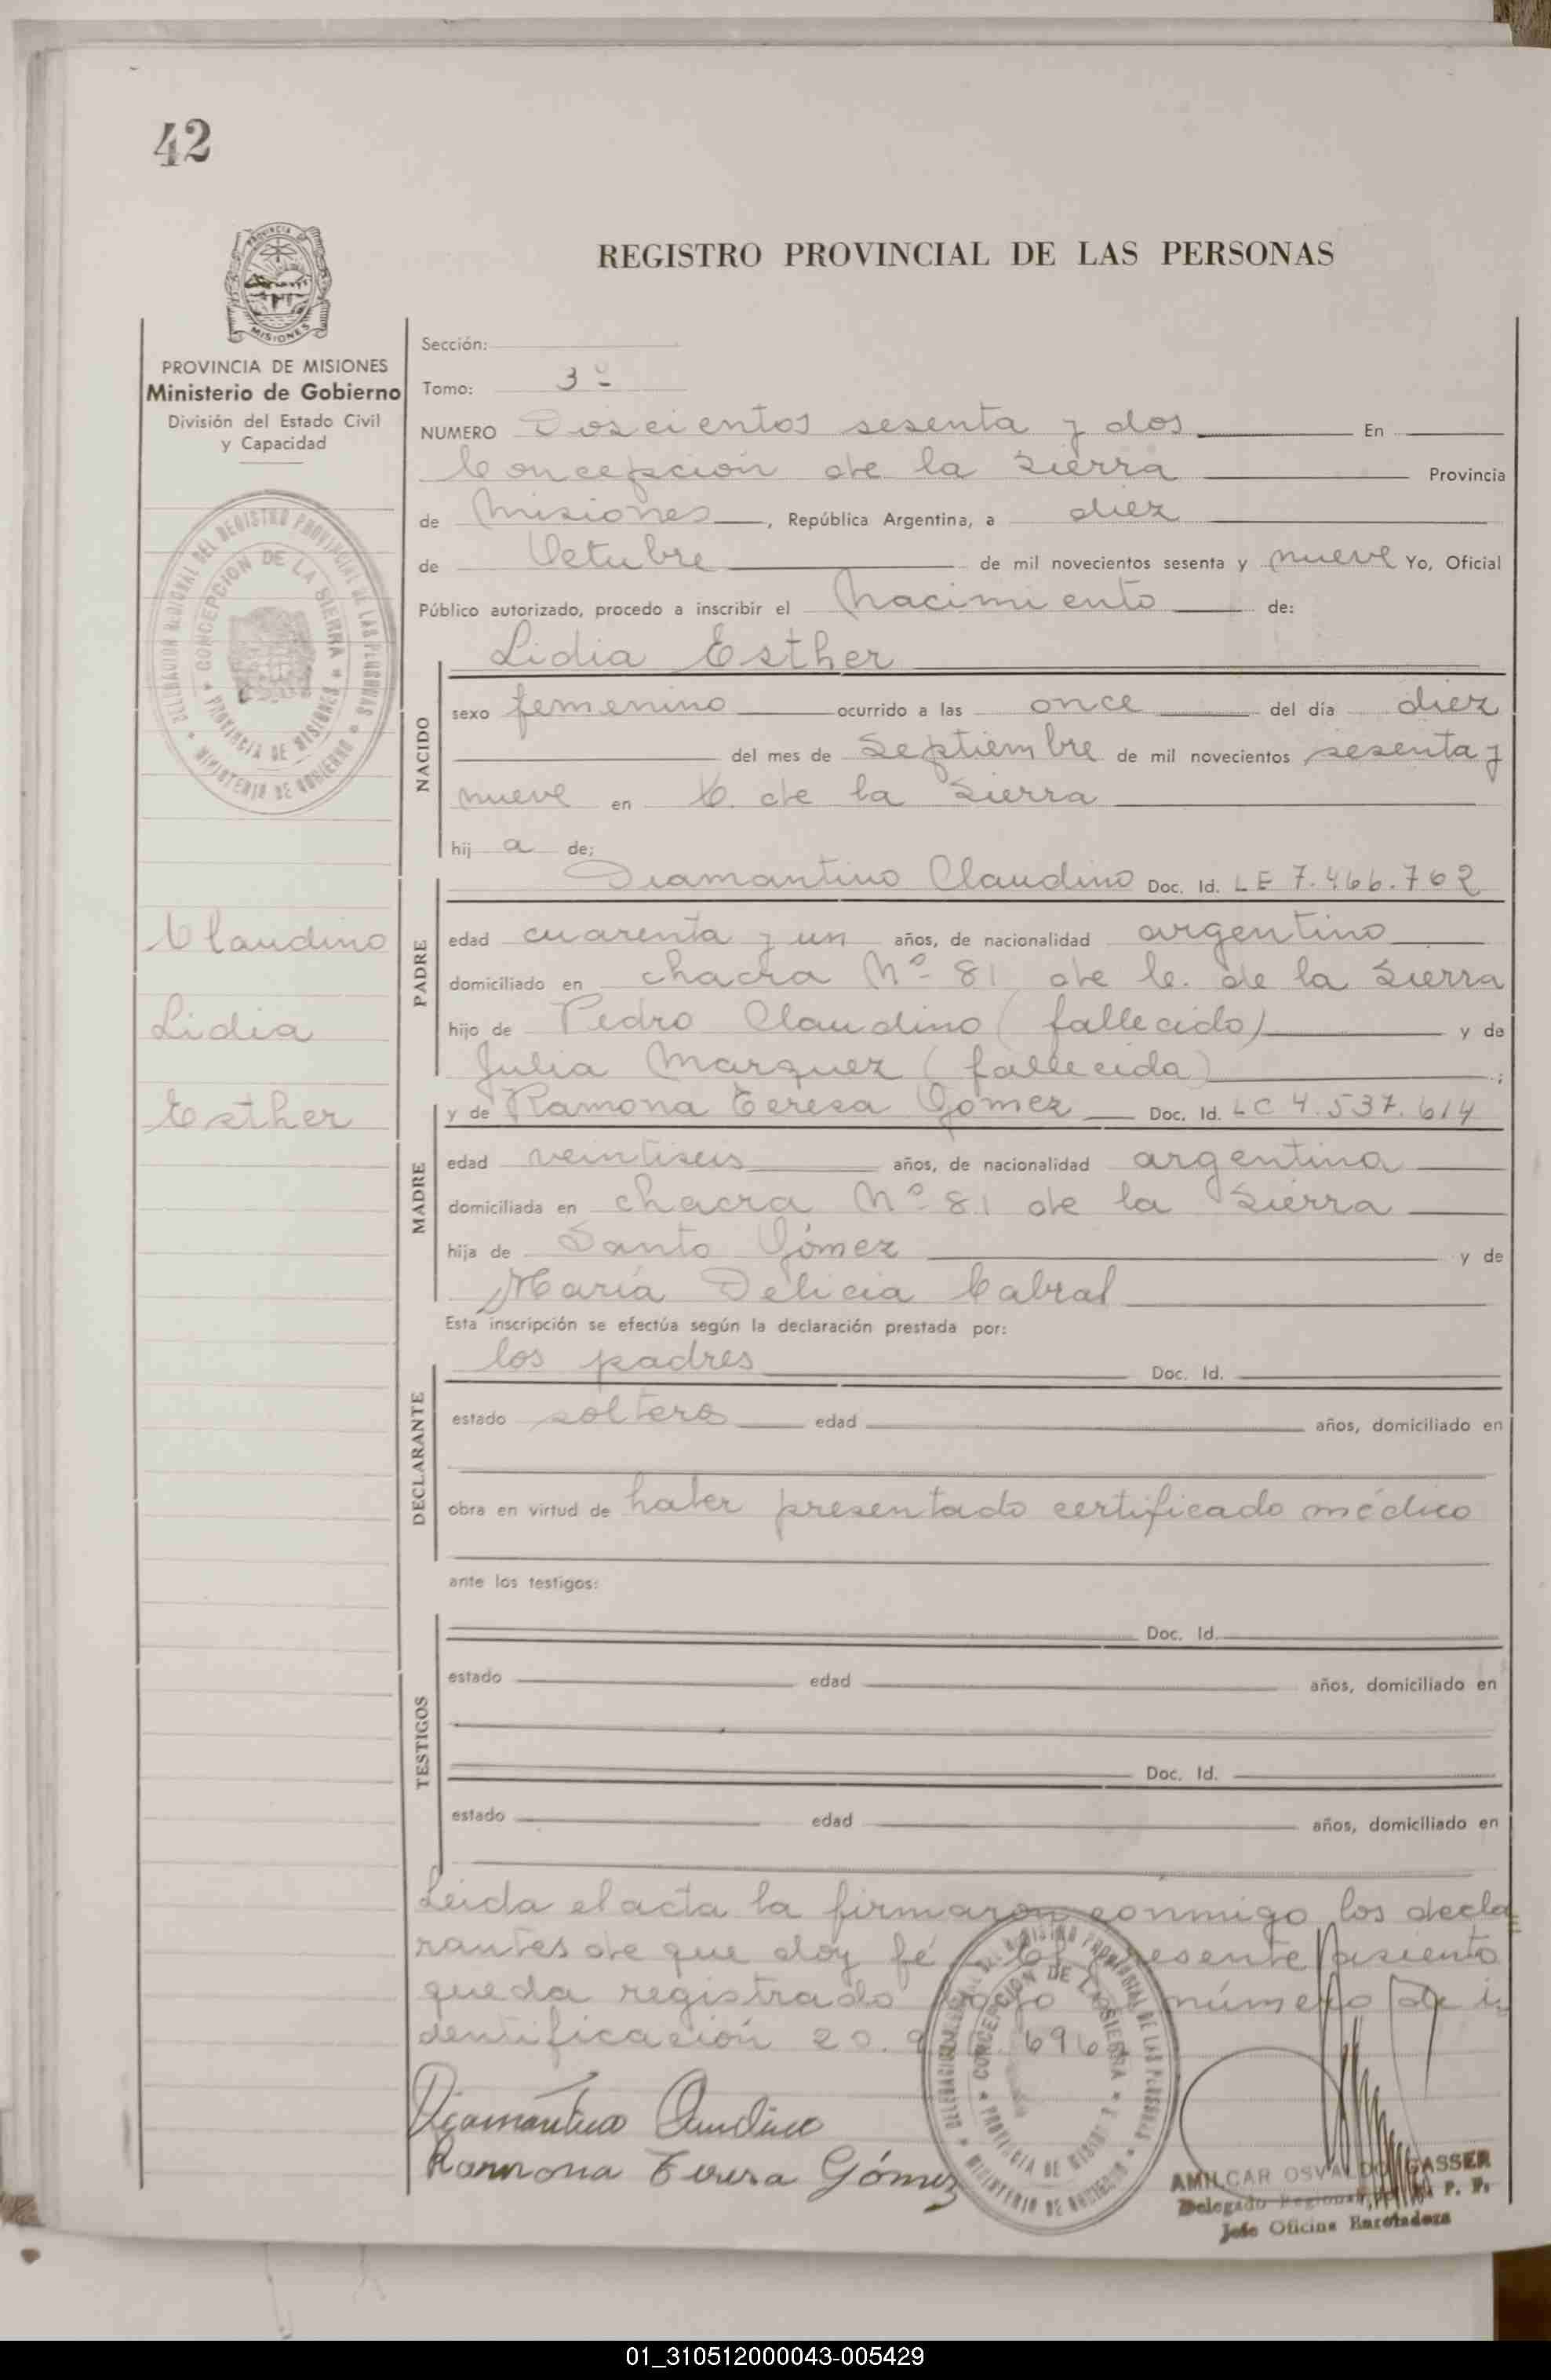 42
REGISTRO PROVINCIAL DE LAS PERSONAS
MISIONES
PROVINCIA DE MISIONES
Ministerio de Gobierno
División del Estado Civil
y Capacidad
DELEGACION REGIONAL DEL REGISTRO PROVINCIAL DE LAS PERSONAS
CONCEPCION DE LA SIERRA
PROVINCIA DE MISIONES
MINISTERIO DE GOBIERNO
Claudino
Lidia
Esther
Sección:
Tomo: 3º
NUMERO Doscientos sesenta y dos En
Concepción de la Sierra Provincia
de Misiones, República Argentina, a diez
de Octubre de mil novecientos sesenta y nueve Yo, Oficial
Público autorizado, procedo a inscribir el nacimiento de:
Lidia Esther
NACIDO
sexo femenino ocurrido a las once del día diez
del mes de Septiembre de mil novecientos sesenta y
nueve en C. de la Sierra
hij a de:
PADRE
Diamantino Claudino Doc. Id. LE 7.466.762
edad cuarenta y un años, de nacionalidad argentino
domiciliado en chacra Nº 81 de C. de la Sierra
hijo de Pedro Claudino (fallecido) y de
Julia Marquez (fallecida) ;
MADRE
y de Ramona Teresa Gómez Doc. Id. LC 4.537.614
edad veintiseis años, de nacionalidad argentina
domiciliada en chacra Nº 81 de la Sierra
hija de Santo Gómez y de
María Delicia Cabral
Esta inscripción se efectúa según la declaración prestada por:
DECLARANTE
los padres Doc. Id.
estado soltero edad años, domiciliado en
obra en virtud de haber presentado certificado médico
ante los testigos:
TESTIGOS
Doc. Id.
estado edad años, domiciliado en
Doc. Id.
estado edad años, domiciliado en
Leida el acta la firmaron conmigo los decla
rantes de que doy fé. El presente asiento
queda registrado bajo número de i
dentificación 20. 696
Diamantino Claudino
Ramona Teresa Gómez
DELEGACION REGIONAL DEL REGISTRO PROVINCIAL DE LAS PERSONAS
CONCEPCION DE LA SIERRA
PROVINCIA DE MISIONES
MINISTERIO DE GOBIERNO
AMILCAR OSVALDO GASSER
Delegado Regional R. P. P.
Jefe Oficina
01_310512000043-005429